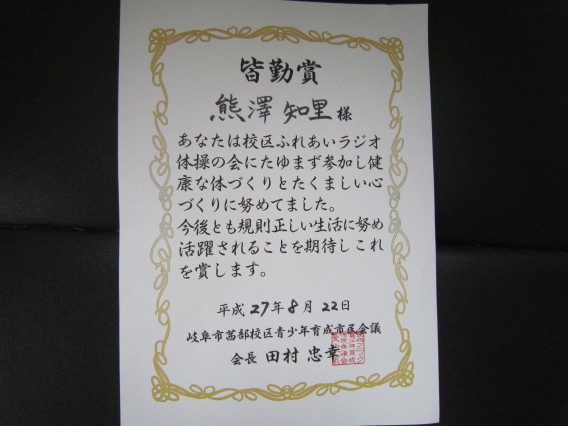 皆勤賞
熊澤 知里 様
あなたは校区ふれあいラジオ
体操の会にたゆまず参加し健
康な体づくりとたくましい心
づくりに努めてました。
今後とも規則正しい生活に努め
活躍されることを期待しこれ
を賞します。
平成 27年 8月 22日
岐阜市茜部校区青少年育成市民会議
会長 田村 忠幸